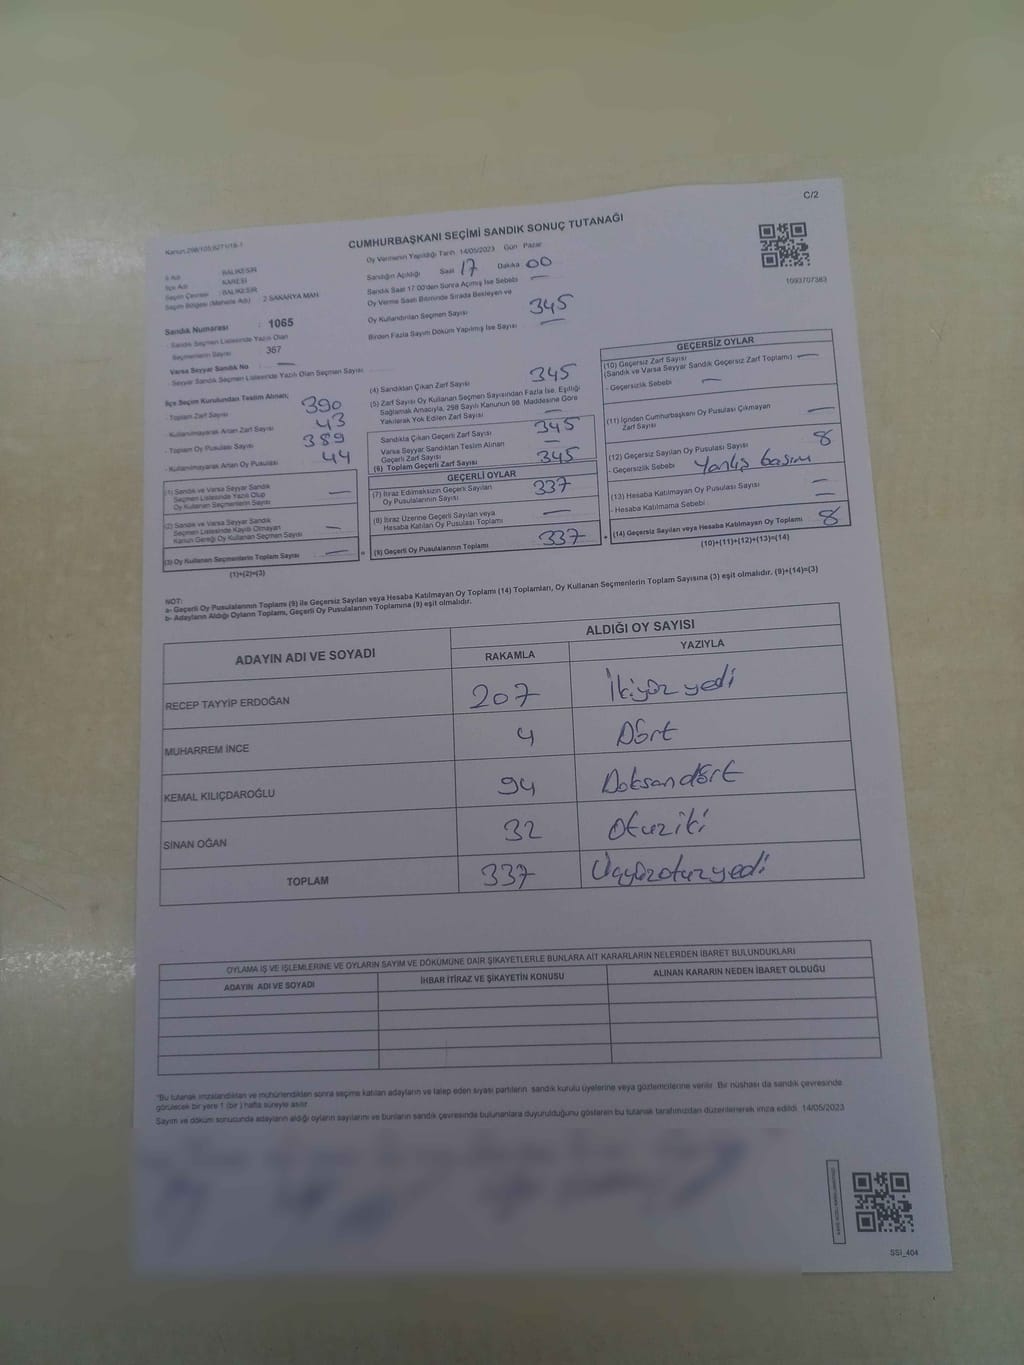 C/2
Kanun:298/105,6271/18-1
CUMHURBAŞKANI SEÇİMİ SANDIK SONUÇ TUTANAĞI
Oy Vermenin Yapıldığı Tarih 14/05/2023 Gün Pazar
1093707383
İl Adı : BALIKESİR
İlçe Adı : KARESİ
Seçim Çevresi : BALIKESİR
Seçim Bölgesi (Mahalle Adı) : 2 SAKARYA MAH.
Sandık Numarası : 1065
- Sandık Seçmen Listesinde Yazılı Olan
Seçmenlerin Sayısı : 367
Varsa Seyyar Sandık No : —
- Seyyar Sandık Seçmen Listesinde Yazılı Olan Seçmen Sayısı
Sandığın Açıldığı Saat 17 Dakika 00
Sandık Saat 17:00'den Sonra Açılmış İse Sebebi —
Oy Verme Saati Bitiminde Sırada Bekleyen ve
Oy Kullandırılan Seçmen Sayısı 345
Birden Fazla Sayım Döküm Yapılmış İse Sayısı —
İlçe Seçim Kurulundan Teslim Alınan;
- Toplam Zarf Sayısı 390
- Kullanılmayarak Artan Zarf Sayısı 43
- Toplam Oy Pusulası Sayısı 389
- Kullanılmayarak Artan Oy Pusulası 44
(1) Sandık ve Varsa Seyyar Sandık
Seçmen Listesinde Yazılı Olup
Oy Kullanan Seçmenlerin Sayısı —
(2) Sandık ve Varsa Seyyar Sandık
Seçmen Listesinde Kayıtlı Olmayan
Kanun Gereği Oy Kullanan Seçmen Sayısı —
(3) Oy Kullanan Seçmenlerin Toplam Sayısı —
(1)+(2)=(3)
(4) Sandıktan Çıkan Zarf Sayısı 345
(5) Zarf Sayısı Oy Kullanan Seçmen Sayısından Fazla İse, Eşitliği
Sağlamak Amacıyla, 298 Sayılı Kanunun 98. Maddesine Göre
Yakılarak Yok Edilen Zarf Sayısı —
Sandıkta Çıkan Geçerli Zarf Sayısı 345
Varsa Seyyar Sandıktan Teslim Alınan
Geçerli Zarf Sayısı —
(6) Toplam Geçerli Zarf Sayısı 345
GEÇERLİ OYLAR
(7) İtiraz Edilmeksizin Geçerli Sayılan
Oy Pusulalarının Sayısı 337
(8) İtiraz Üzerine Geçerli Sayılan veya
Hesaba Katılan Oy Pusulası Toplamı —
= (9) Geçerli Oy Pusulalarının Toplamı 337
GEÇERSİZ OYLAR
(10) Geçersiz Zarf Sayısı
(Sandık ve Varsa Seyyar Sandık Geçersiz Zarf Toplamı) —
- Geçersizlik Sebebi —
(11) İçinden Cumhurbaşkanı Oy Pusulası Çıkmayan
Zarf Sayısı —
(12) Geçersiz Sayılan Oy Pusulası Sayısı 8
- Geçersizlik Sebebi Yanlış basım
(13) Hesaba Katılmayan Oy Pusulası Sayısı —
- Hesaba Katılmama Sebebi —
+ (14) Geçersiz Sayılan veya Hesaba Katılmayan Oy Toplamı 8
(10)+(11)+(12)+(13)=(14)
NOT:
a- Geçerli Oy Pusulalarının Toplamı (9) ile Geçersiz Sayılan veya Hesaba Katılmayan Oy Toplamı (14) Toplamları, Oy Kullanan Seçmenlerin Toplam Sayısına (3) eşit olmalıdır. (9)+(14)=(3)
b- Adayların Aldığı Oyların Toplamı, Geçerli Oy Pusulalarının Toplamına (9) eşit olmalıdır.
ADAYIN ADI VE SOYADI
ALDIĞI OY SAYISI
RAKAMLA YAZIYLA
RECEP TAYYİP ERDOĞAN 207 İkiyüz yedi
MUHARREM İNCE 4 Dört
KEMAL KILIÇDAROĞLU 94 Doksandört
SİNAN OĞAN 32 Otuziki
TOPLAM 337 Üçyüzotuzyedi
OYLAMA İŞ VE İŞLEMLERİNE VE OYLARIN SAYIM VE DÖKÜMÜNE DAİR ŞİKAYETLERLE BUNLARA AİT KARARLARIN NELERDEN İBARET BULUNDUKLARI
ADAYIN ADI VE SOYADI İHBAR İTİRAZ VE ŞİKAYETİN KONUSU ALINAN KARARIN NEDEN İBARET OLDUĞU
*Bu tutanak imzalandıktan ve mühürlendikten sonra seçime katılan adayların ve talep eden siyasi partilerin sandık kurulu üyelerine veya gözlemcilerine verilir. Bir nüshası da sandık çevresinde
görülecek bir yere 1 (bir) hafta süreyle asılır.
Sayım ve döküm sonucunda adayların aldığı oyların sayılarını ve bunların sandık çevresinde bulunanlara duyurulduğunu gösteren bu tutanak tarafımızdan düzenlenerek imza edildi. 14/05/2023
SSI_404